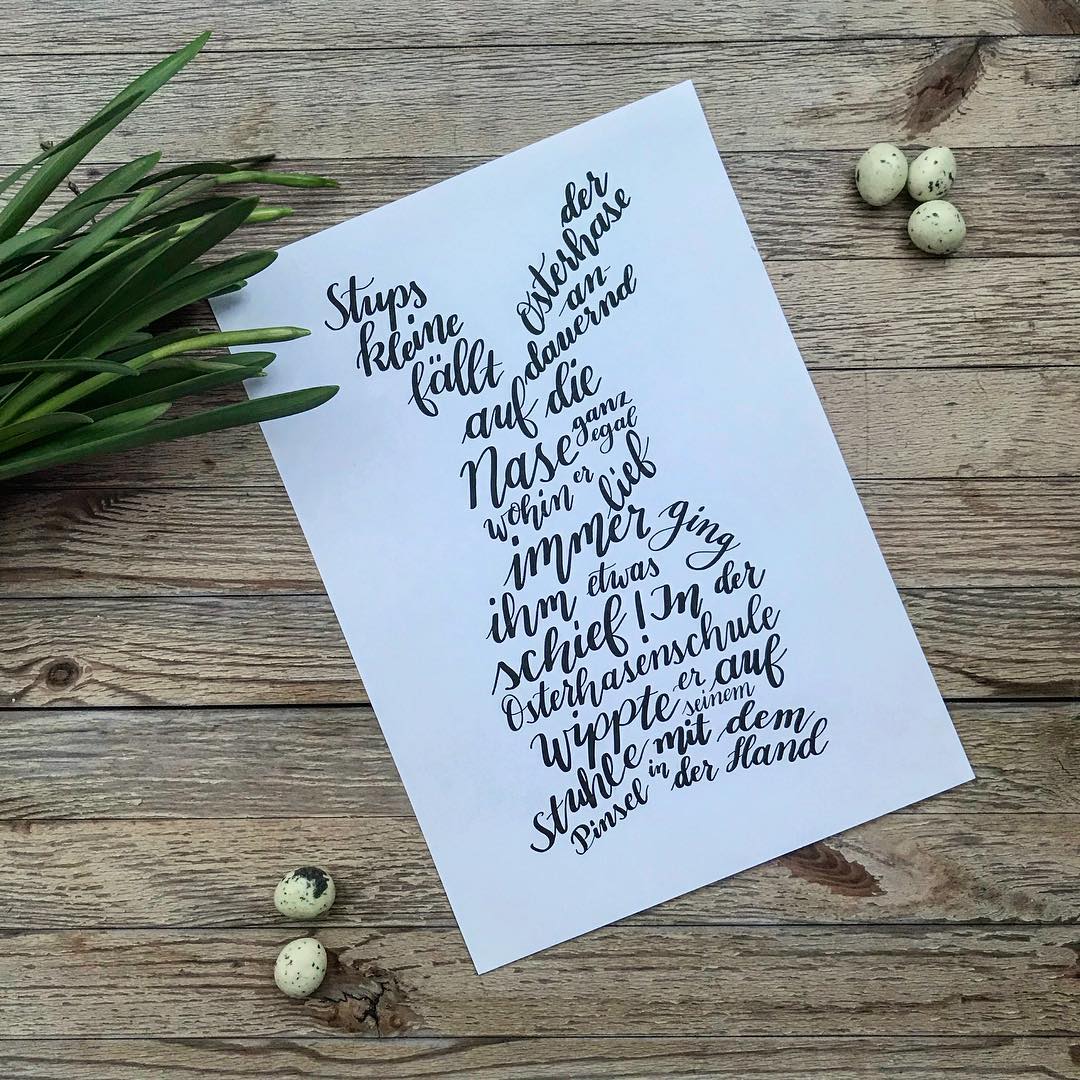 Stups der
kleine Osterhase
fällt an-
dauernd
auf die
Nase ganz egal
wohin er lief
immer ging
ihm etwas
schief! In der
Osterhasenschule
wippte er auf
seinem
Stuhle mit dem
Pinsel in der Hand